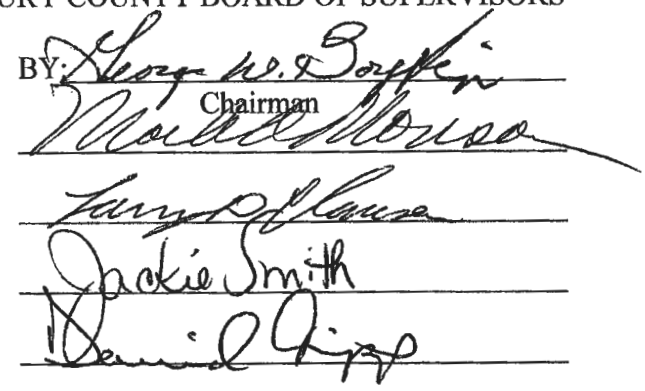 URY COUNTY BOARD OF SUPERVISORS
BY: George W. Boykin
Chairman
Mark Monson
Larry D. Clausen
Jackie Smith
David Tripp